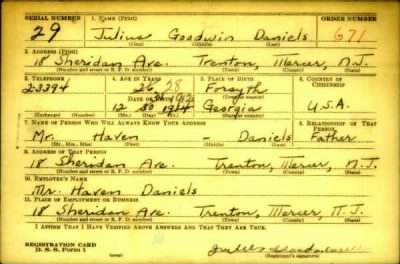 SERIAL NUMBER 1. NAME (Print) ORDER NUMBER
29 Julius Goodwin Daniels 671
(First) (Middle) (Last)
2. ADDRESS (Print)
18 Sheridan Ave. Trenton, Mercer, N.J.
(Number and street or R. F. D. number) (Town) (County) (State)
3. TELEPHONE 4. AGE IN YEARS 5. PLACE OF BIRTH 6. COUNTRY OF CITIZENSHIP
2-3394 26 28 Forsyth
DATE OF BIRTH (Town or county)
12 30 1914 1912 Georgia U.S.A.
(Exchange) (Number) (Mo.) (Day) (Yr.) (State or country)
7. NAME OF PERSON WHO WILL ALWAYS KNOW YOUR ADDRESS 8. RELATIONSHIP OF THAT PERSON
Mr. Haven - Daniels Father
(Mr., Mrs., Miss) (First) (Middle) (Last)
9. ADDRESS OF THAT PERSON
18 Sheridan Ave. Trenton, Mercer, N.J.
(Number and street or R. F. D. number) (Town) (County) (State)
10. EMPLOYER'S NAME
Mr. Haven Daniels
11. PLACE OF EMPLOYMENT OR BUSINESS
18 Sheridan Ave. Trenton, Mercer, N.J.
(Number and street or R. F. D. number) (Town) (County) (State)
I AFFIRM THAT I HAVE VERIFIED ABOVE ANSWERS AND THAT THEY ARE TRUE.
REGISTRATION CARD
D. S. S. Form 1 (Registrant's signature)